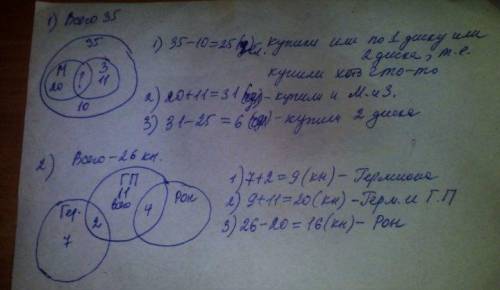 1) Всего 35
35
М
20
?
З
11
10
1) 35-10=25(чел.) купили или по 1 диску или
2 диска, т.е.
купили хоть что-то
2) 20+11=31 - купили и М. и З.
3) 31-25=6 - купили 2 диска
2) Всего-26 кн.
ГП
11
всего
Гер.
7
2
4
Рон
1) 7+2=9(кн)-Гермиона
2) 9+11=20(кн)-Герм. и Г.П
3) 26-20=16(кн)-Рон